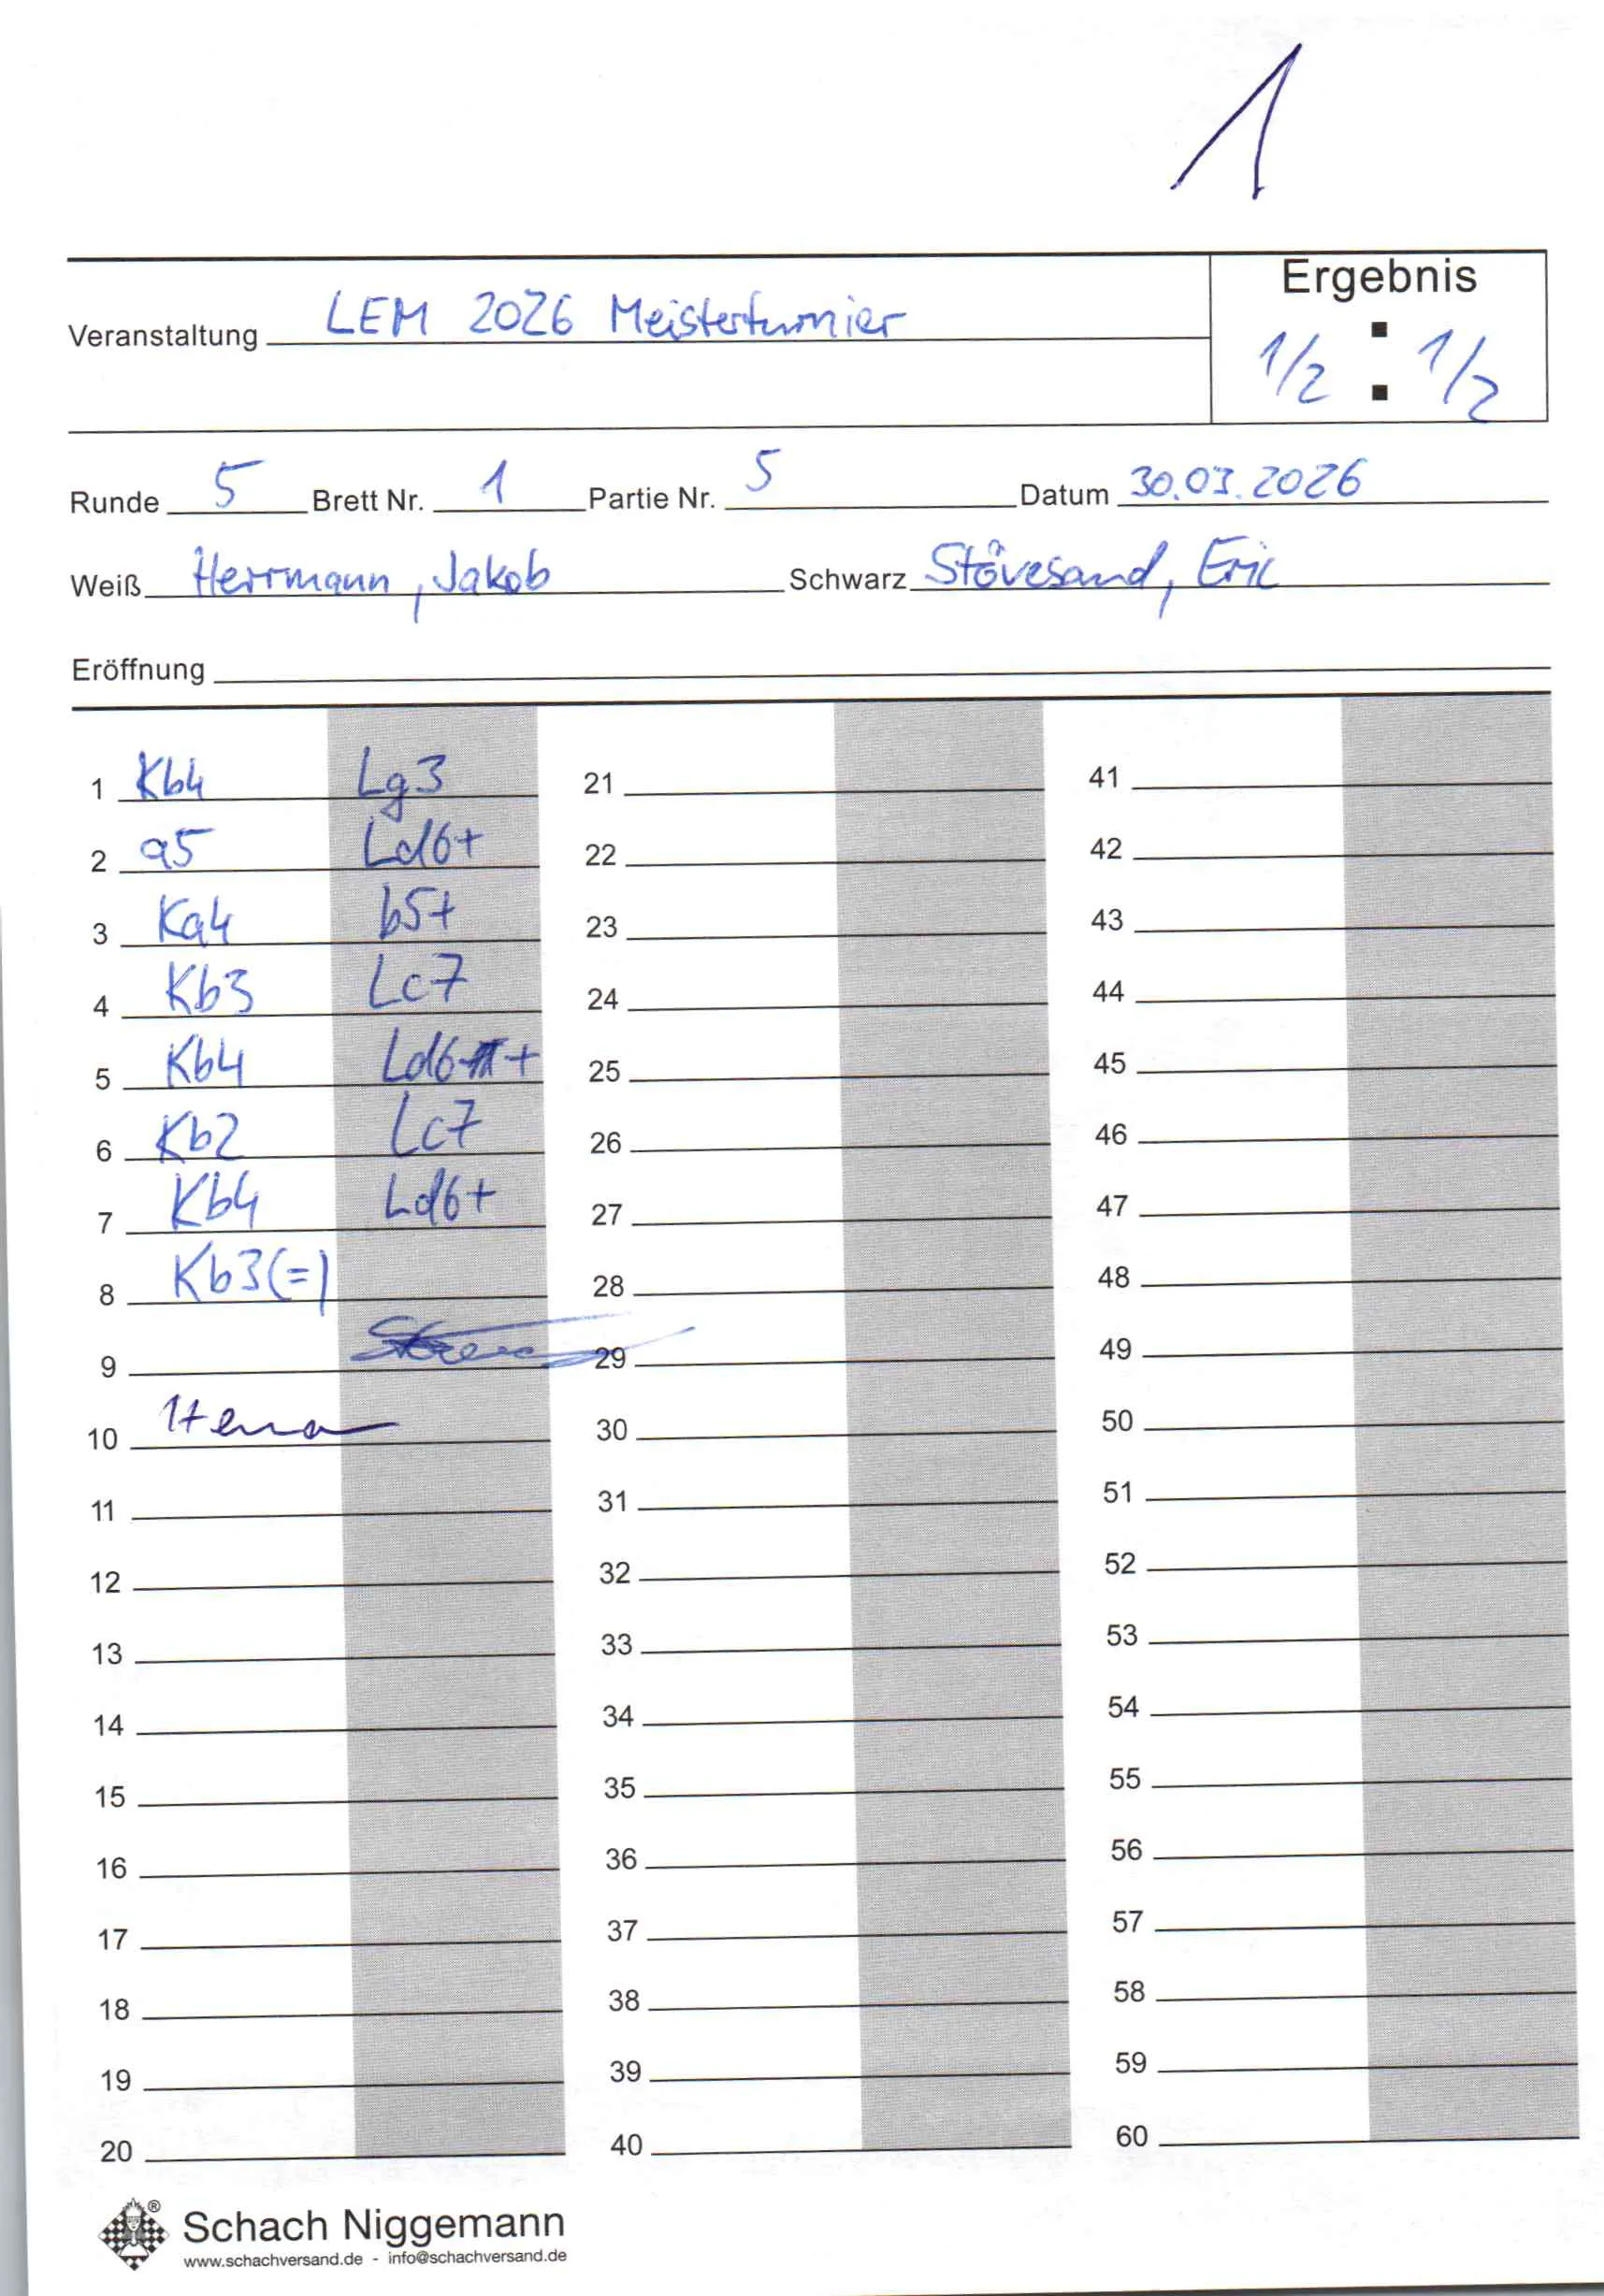 1
Ergebnis
Veranstaltung LEM 2026 Meisterturnier
1/2 : 1/2
Runde 5 Brett Nr. 1 Partie Nr. 5 Datum 30.03.2026
Weiß Herrmann, Jakob Schwarz Stövesand, Eric
Eröffnung
1 Kb4 Lg3 21 41
2 a5 Ld6+ 22 42
3 Ka4 b5+ 23 43
4 Kb3 Lc7 24 44
5 Kb4 Ld6+ 25 45
6 Kb2 Lc7 26 46
7 Kb4 Ld6+ 27 47
8 Kb3(=) 28 48
9 29 49
10 30 50
11 31 51
12 32 52
13 33 53
14 34 54
15 35 55
16 36 56
17 37 57
18 38 58
19 39 59
20 40 60
® Schach Niggemann
www.schachversand.de - info@schachversand.de